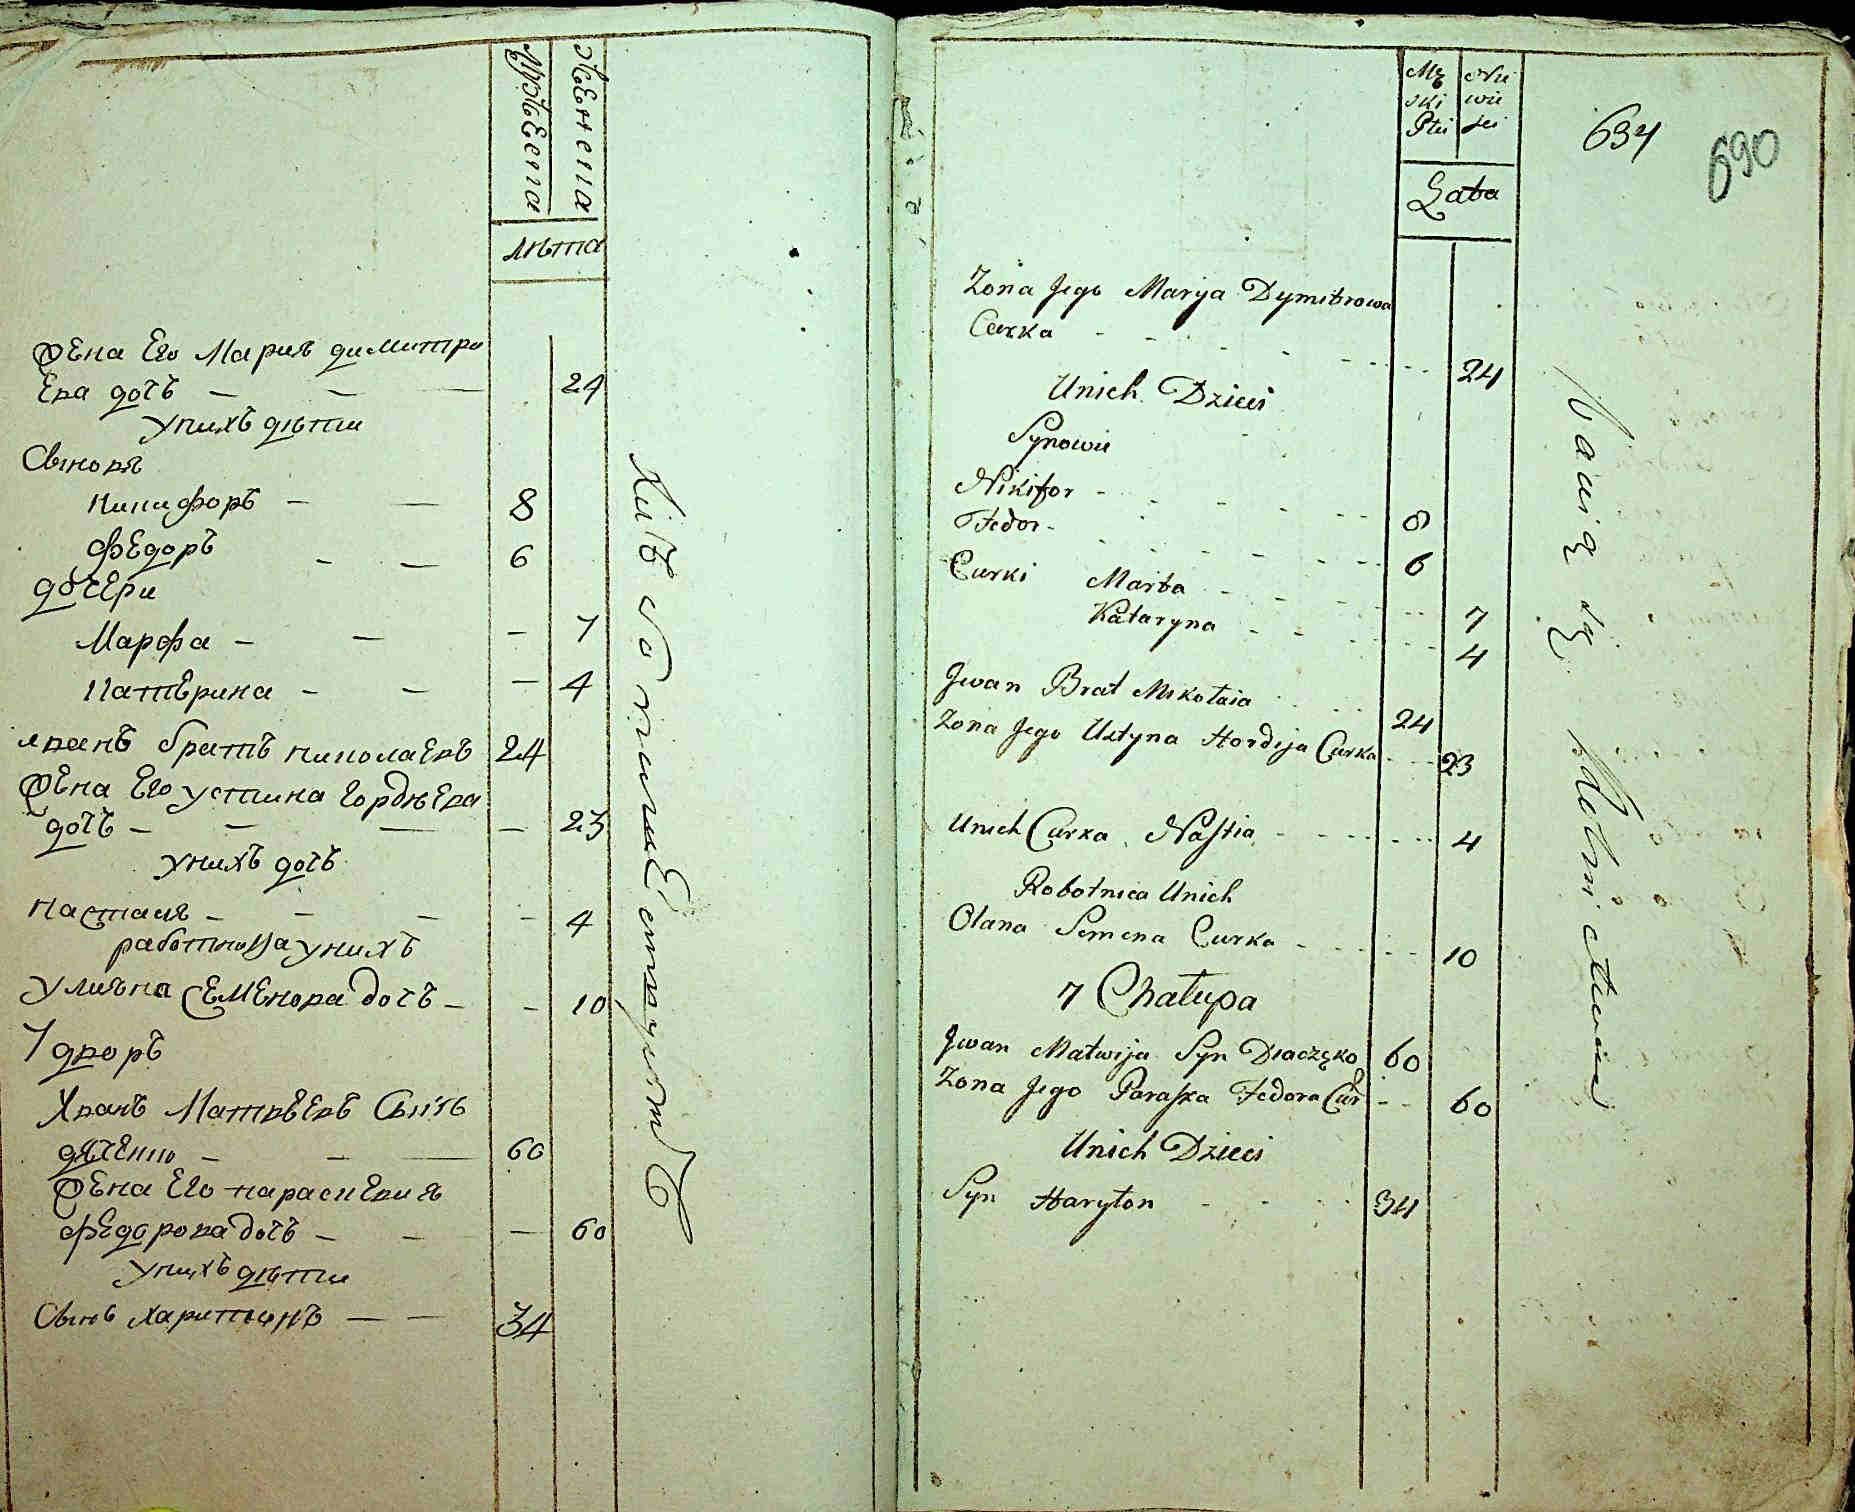 мужеска
женска
лѣта
жена его Мария димитри
ева дочь — — — 24
у нихъ дѣти
Сыновя
никифоръ — — 8
федоръ — — 6
дочери
Марфа — — — 7
Катерина — — — 4
иванъ братъ николаевъ 24
жена его устина гордѣева
дочь — — — — 23
у нихъ дочь
настася — — — — 4
работница у нихъ
улияна Семенова дочь — — 10
7 дворъ
Иванъ Матвѣевъ Сынъ
дяченко — — — 60
жена его параскевия
федорова дочь — — — 60
у нихъ дѣти
Сынъ харитонъ — — 34
634
690
Męskiey Płci
Niewieściey
Lata
Żona Jego Marya Dymitrowa
Curka - - - 24
Unich Dzieci
Synowie
Nikifor - - - 8
Fedor - - - 6
Curki Marta - - - 7
Kataryna - - - 4
Jwan Brat Mikołaia - - - 24
Żona Jego Ustyna Hordija Curka - - 23
Unich Curka Nastia - - - 4
Robotnica Unich
Olana Semena Curka - - - 10
7 Chałupa
Jwan Matwija Syn Diaczęko 60
Żona Jego Paraska Fedora Cur - - 60
Unich Dzieci
Syn Haryton - - - 34